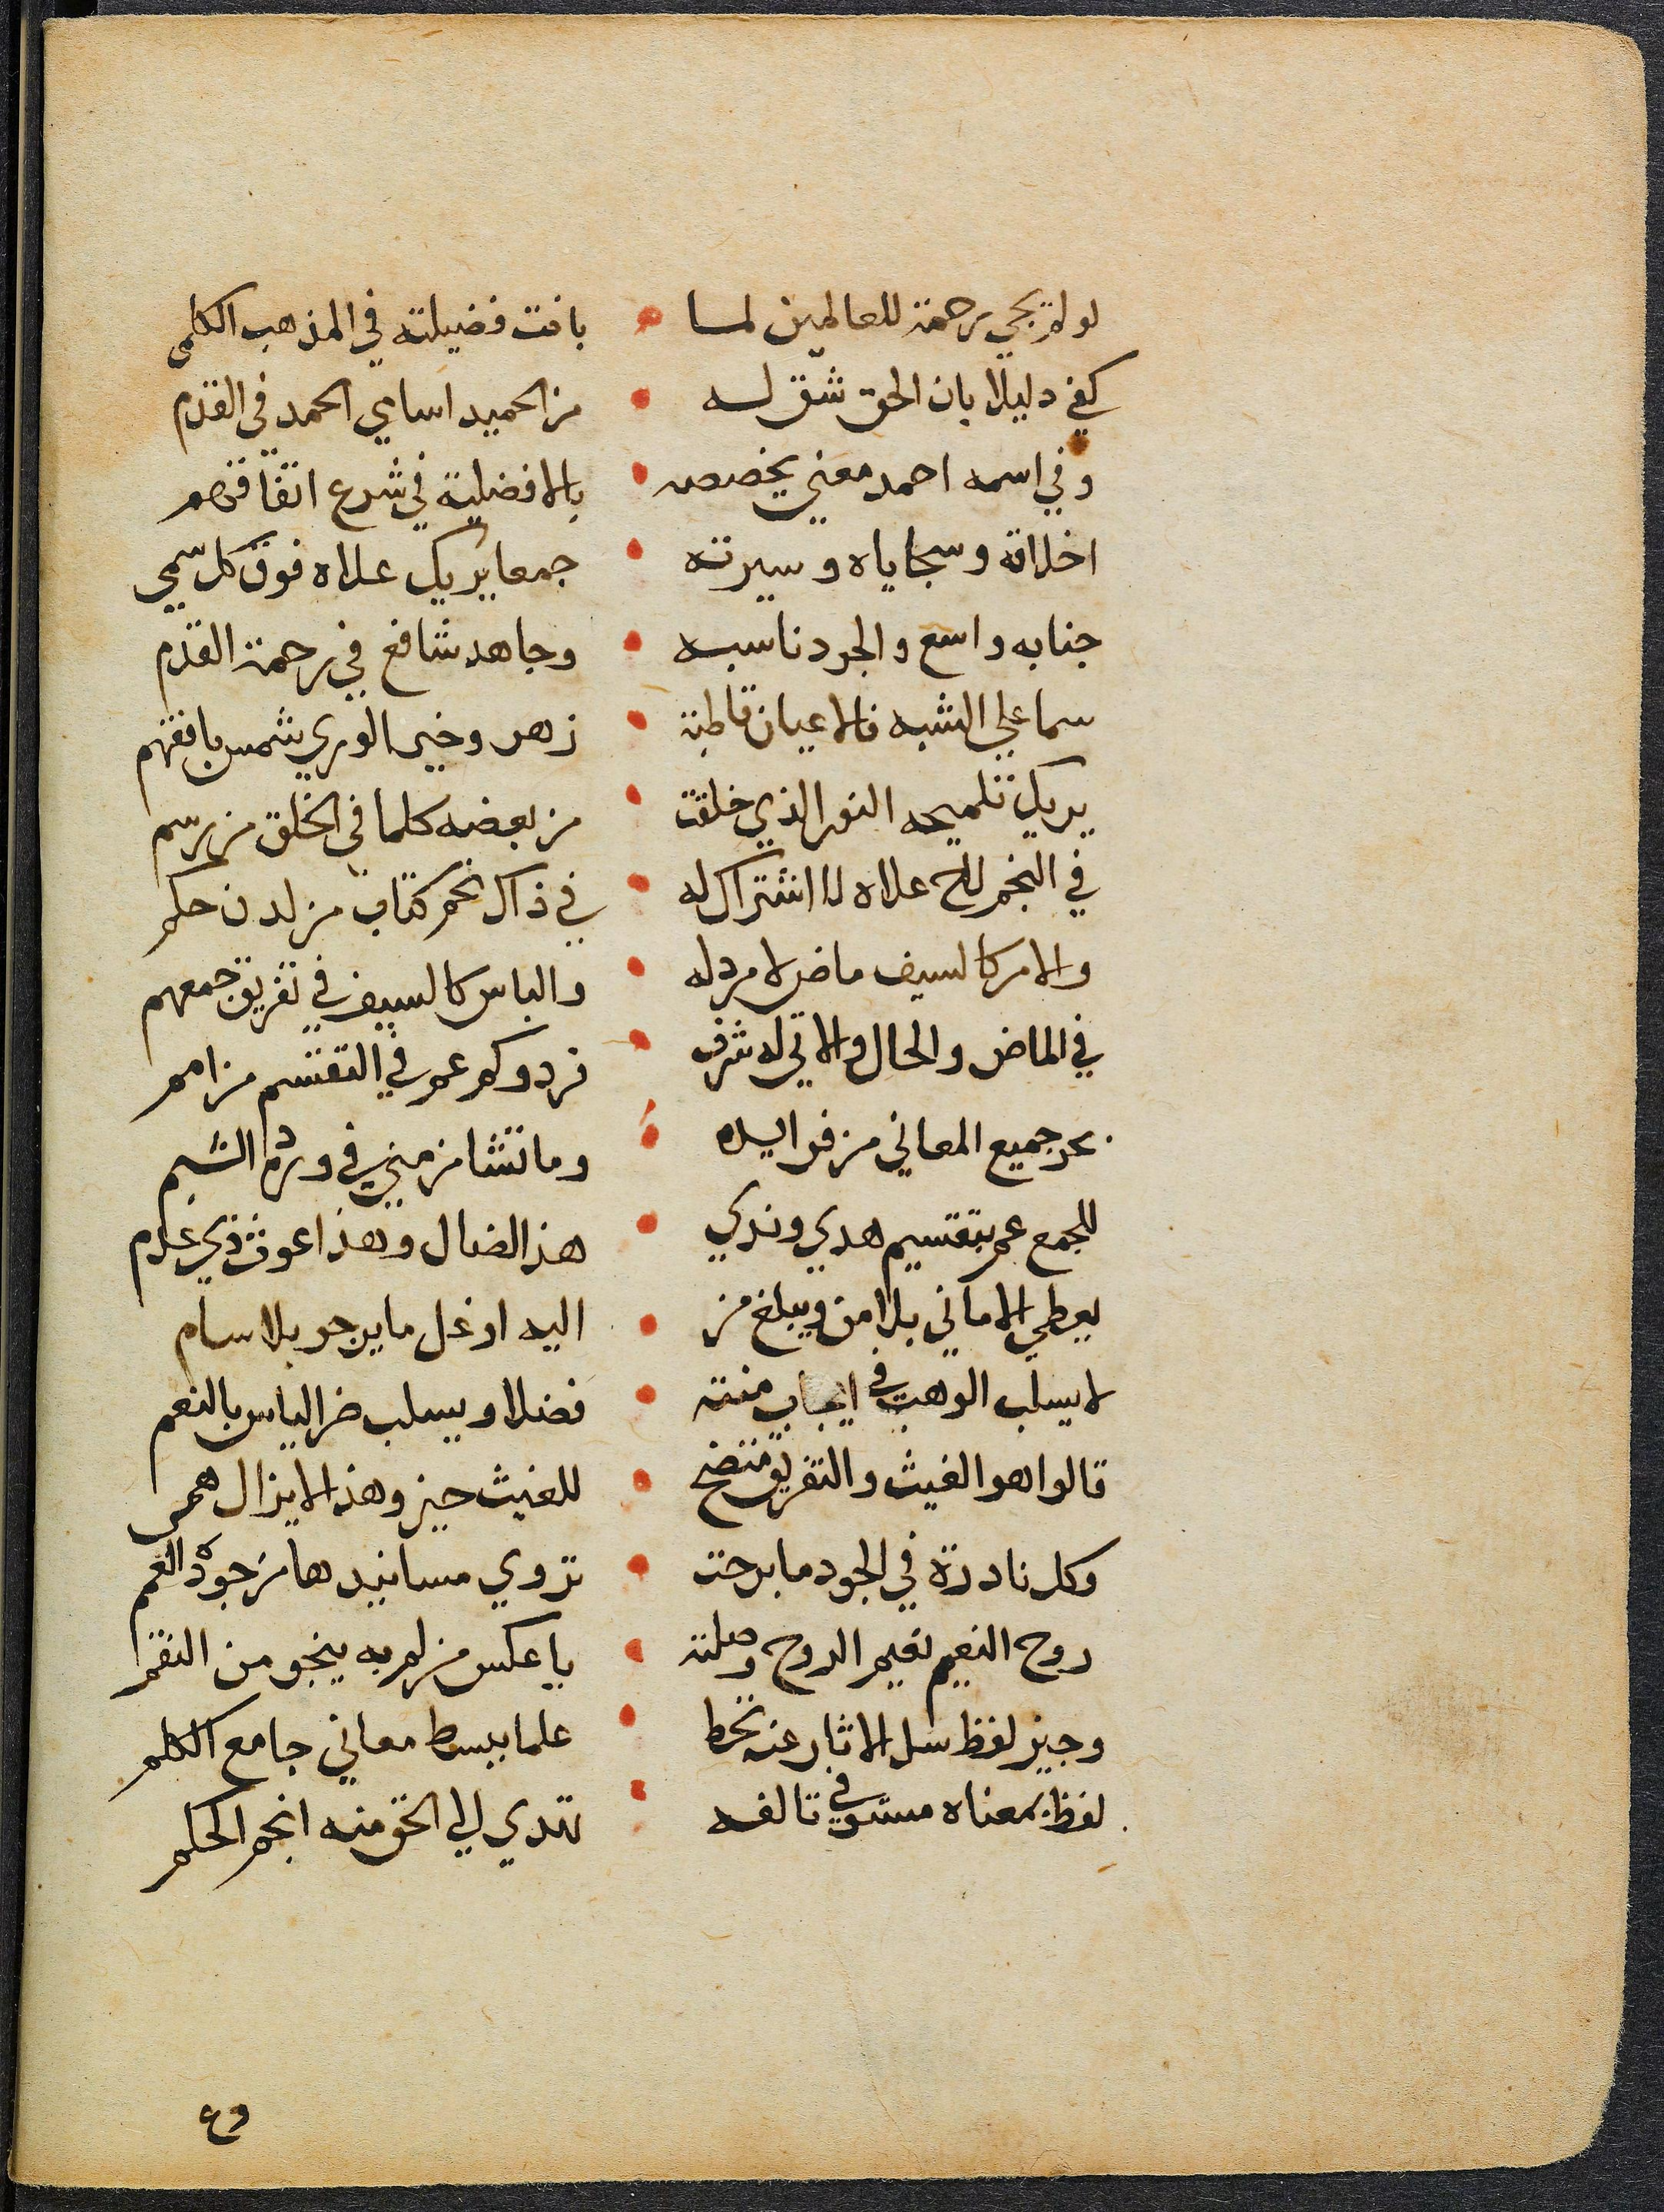 لو لم يجي رحمة للعالمين لما بانت فضيلته في المذهب الكلمي
كفي دليلا بان الحق شق له من الحميد اسامي الحمد في القدم
وفي اسمه احمد معني يخصصه بالافضلية في شرع اتفاقهم
اخلاقه وسجاياه وسيرته جمعا يريك علاه فوق كل سمي
جنابه واسع والجود ناسبه وجاهه شافع في رحمة القدم
سما علي الشبه فالاعيان قاطبة زهر وخير الوري شمس بافقهم
يريك تلميحه النور الذي خلقت من بعضه كلما في الخلق من رسم
في النجم لاح علاه لا اشتراك له في ذاك نجم كتاب من لدن حكم
والامر كالسيف ماض لا مرد له والباس كالسيف في تفريق جمعهم
في الماض والحال والاتي له شرف فرد وكم عم في التقسم من امم
بحر جميع المعاني من فوايده وما تشا من مني في ورده الشبم
للجمع عم بتقسيم هدي وندي هذا لضال وهذا غوث ذي عدم
يعطي الاماني بلا من ويبلغ من اليه اوغل ما يرجو بلا سام
لا يسلب الوهب في ايجاب منته فضلا ويسلب ضر الباس بالنعم
قالوا هو الغيث والتفريق متضح للغيث حين وهذا لا يزال همي
وكل نادرة في الجود ما برحت تروي مسانيدها من جوده العمم
روح النعيم نعيم الروح وصلته يا عكس من لم به ينجو من النقم
وجيز لفظ سل الاثار عنه تحط علما ببسط معاني جامع الكلم
لفظ بمعناه مستوفي تالفه تبدي لي الحق منه انجم الحكم
وع